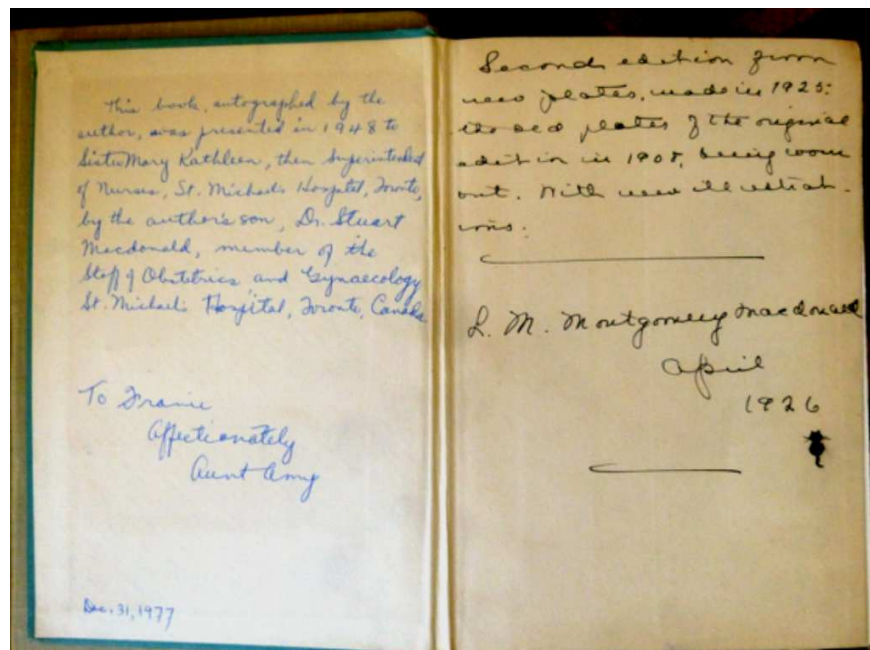 This book, autographed by the
author, was presented in 1948 to
Sister Mary Kathleen, then Superintendent
of Nurses, St. Michael's Hospital, Toronto,
by the author's son, Dr. Stuart
Macdonald, member of the
Staff of Obstetrics and Gynaecology
St. Michael's Hospital, Toronto, Canada
To
Affectionately
Aunt Amy
Dec. 31, 1977
Second edition from
new plates, made in 1925:
the old plates of the original
edition in 1908, being worn
out. With new illustrat-
ions.
L. M. Montgomery Macdonald
April
1926